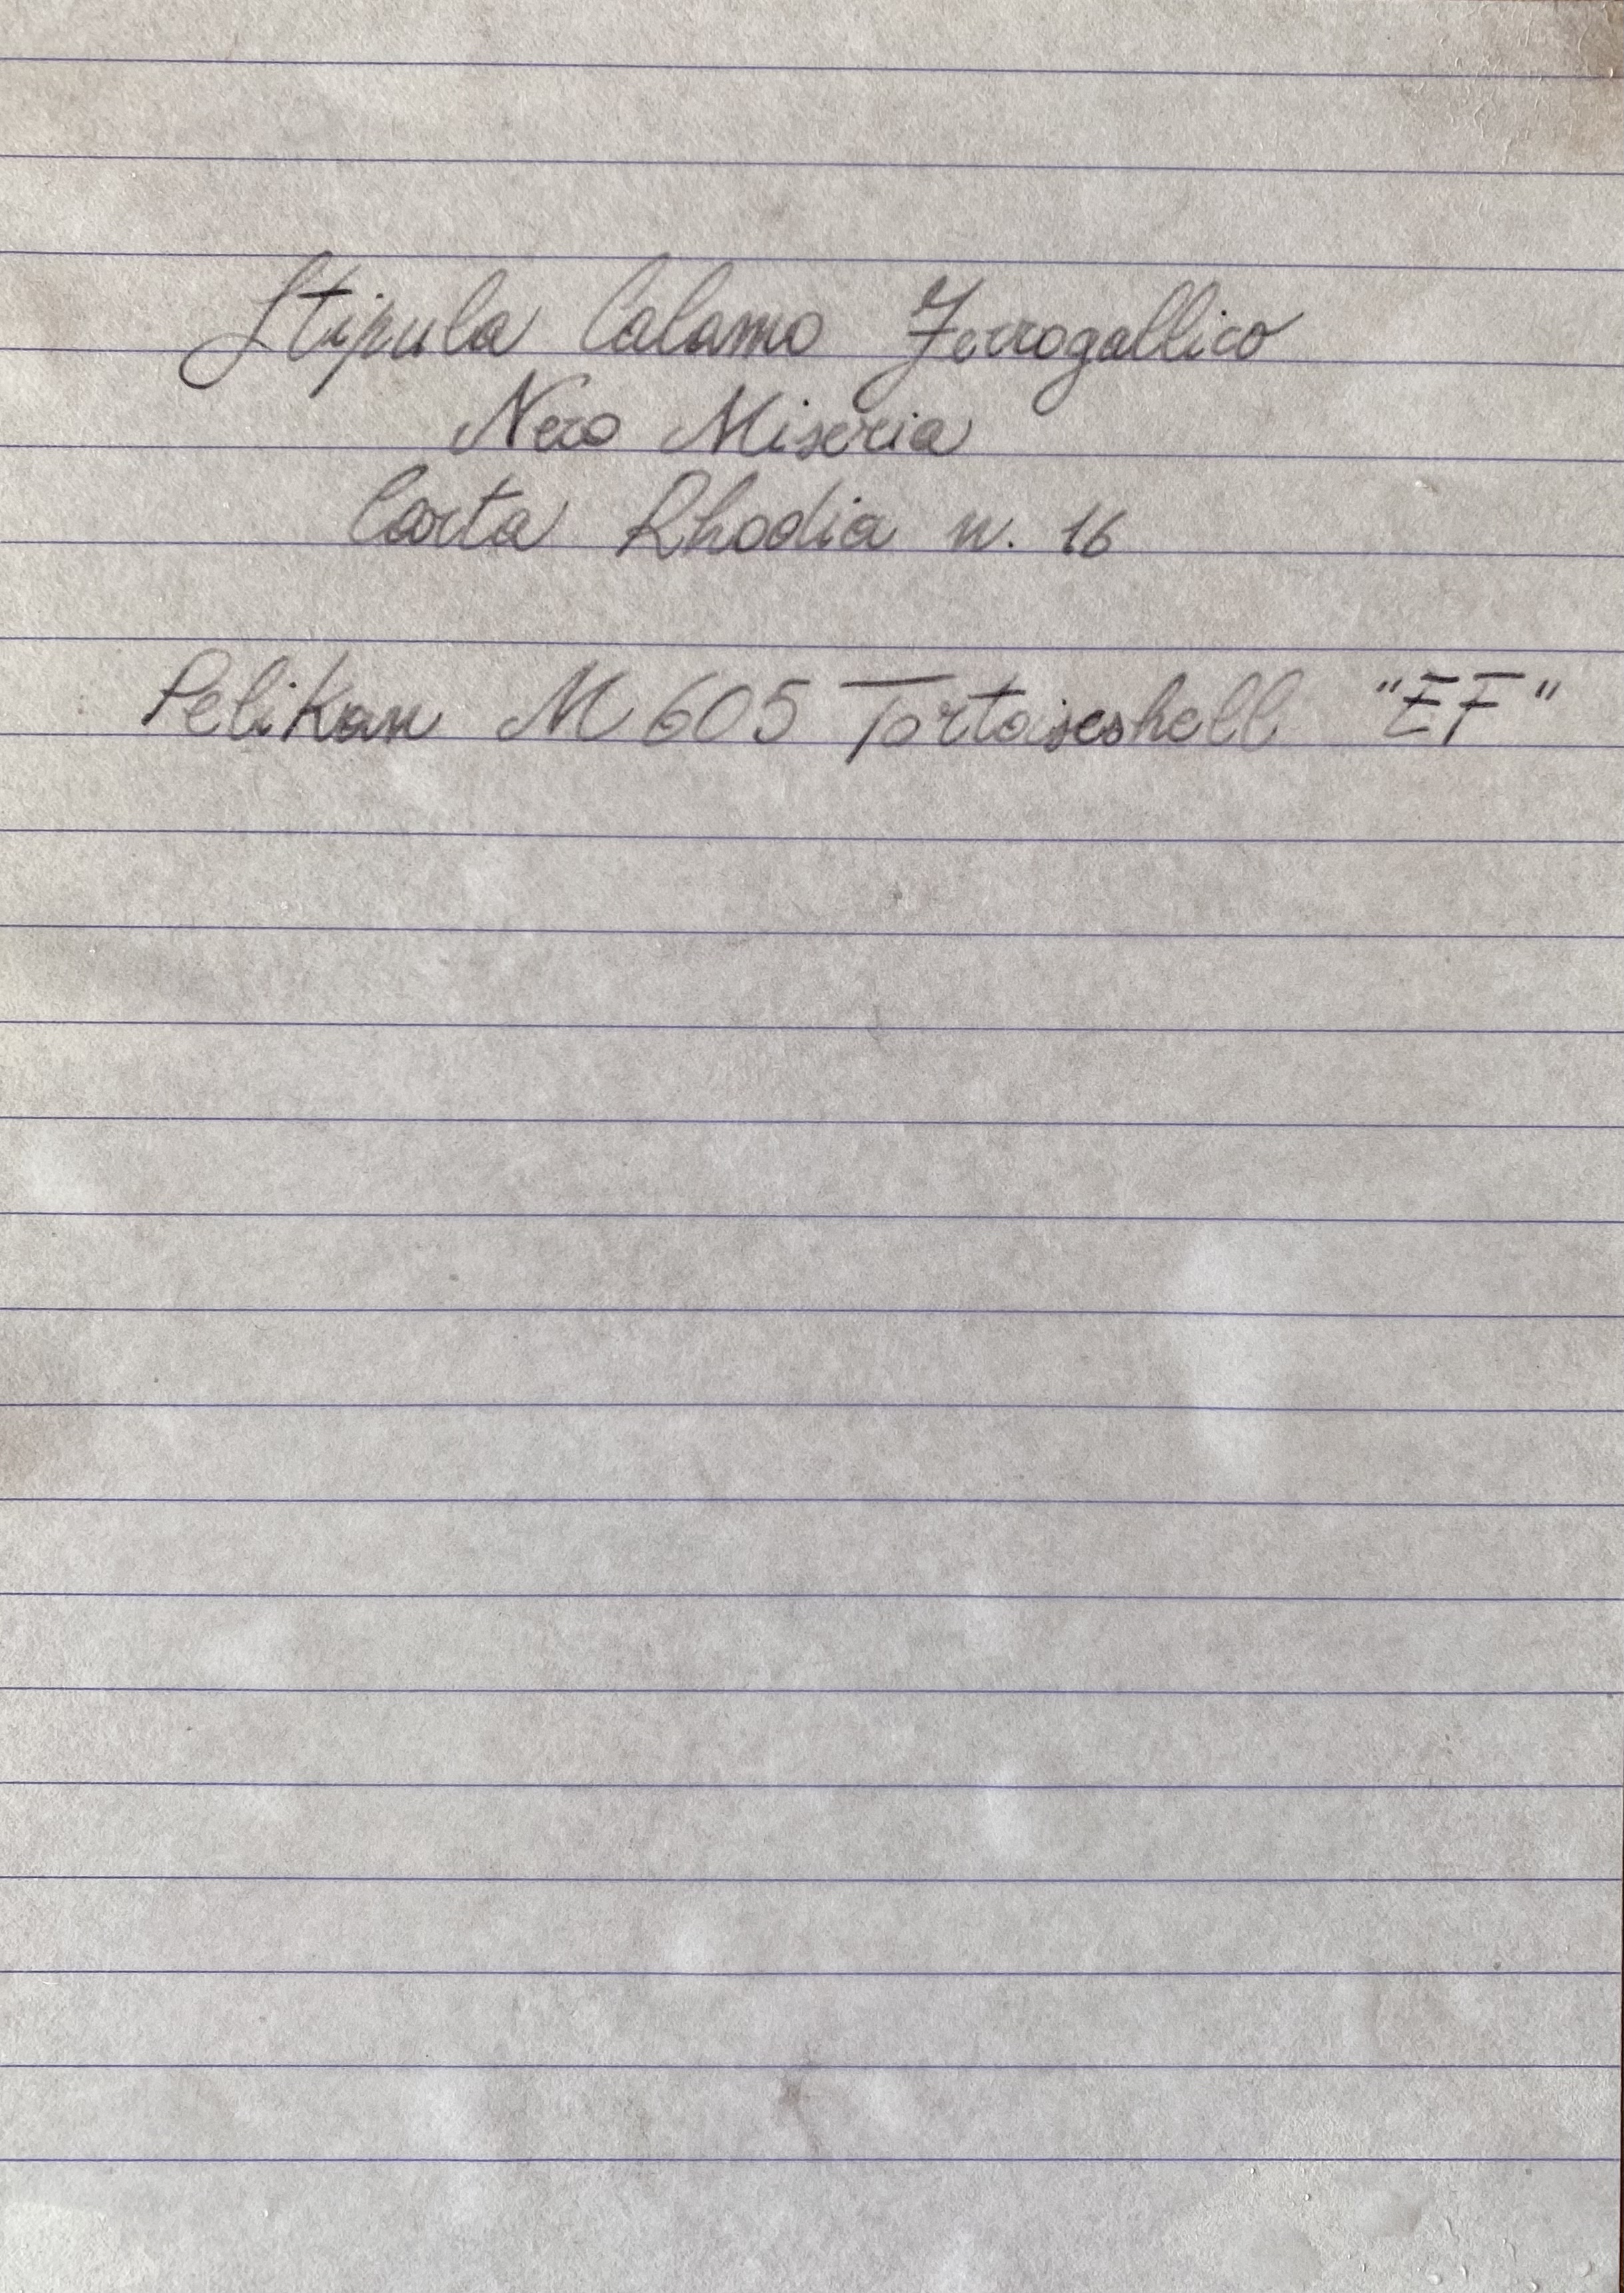 Stipula Calamo Ferrogallico
Nero Miseria
Carta Rhodia n. 16
Pelikan M605 Tortoiseshell "EF"